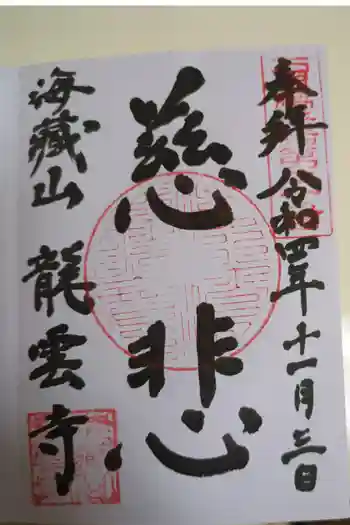 奉拝 令和四年十一月三日
慈悲
海蔵山 龍雲寺